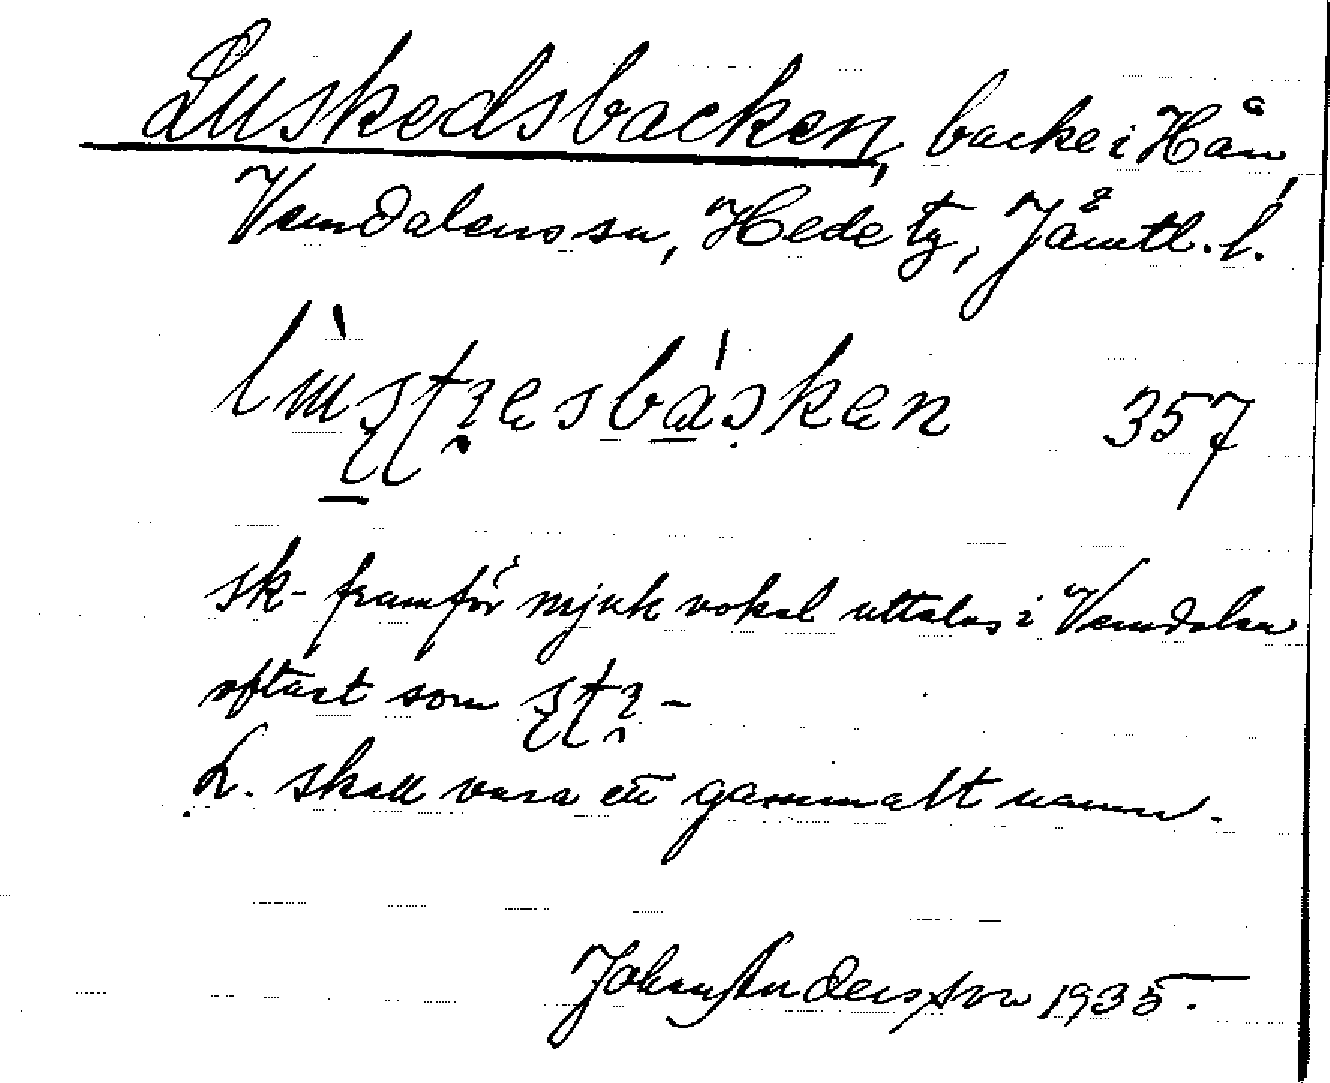 Luskedsbacken, backe i Hån,
Vemdalens sn, Hede tg, Jämtl. l.
357
sk- framför mjuk vokal uttalas i Vemdalen
oftast som
L. skall vara ett gammalt namn.
Johan Andersson 1935.